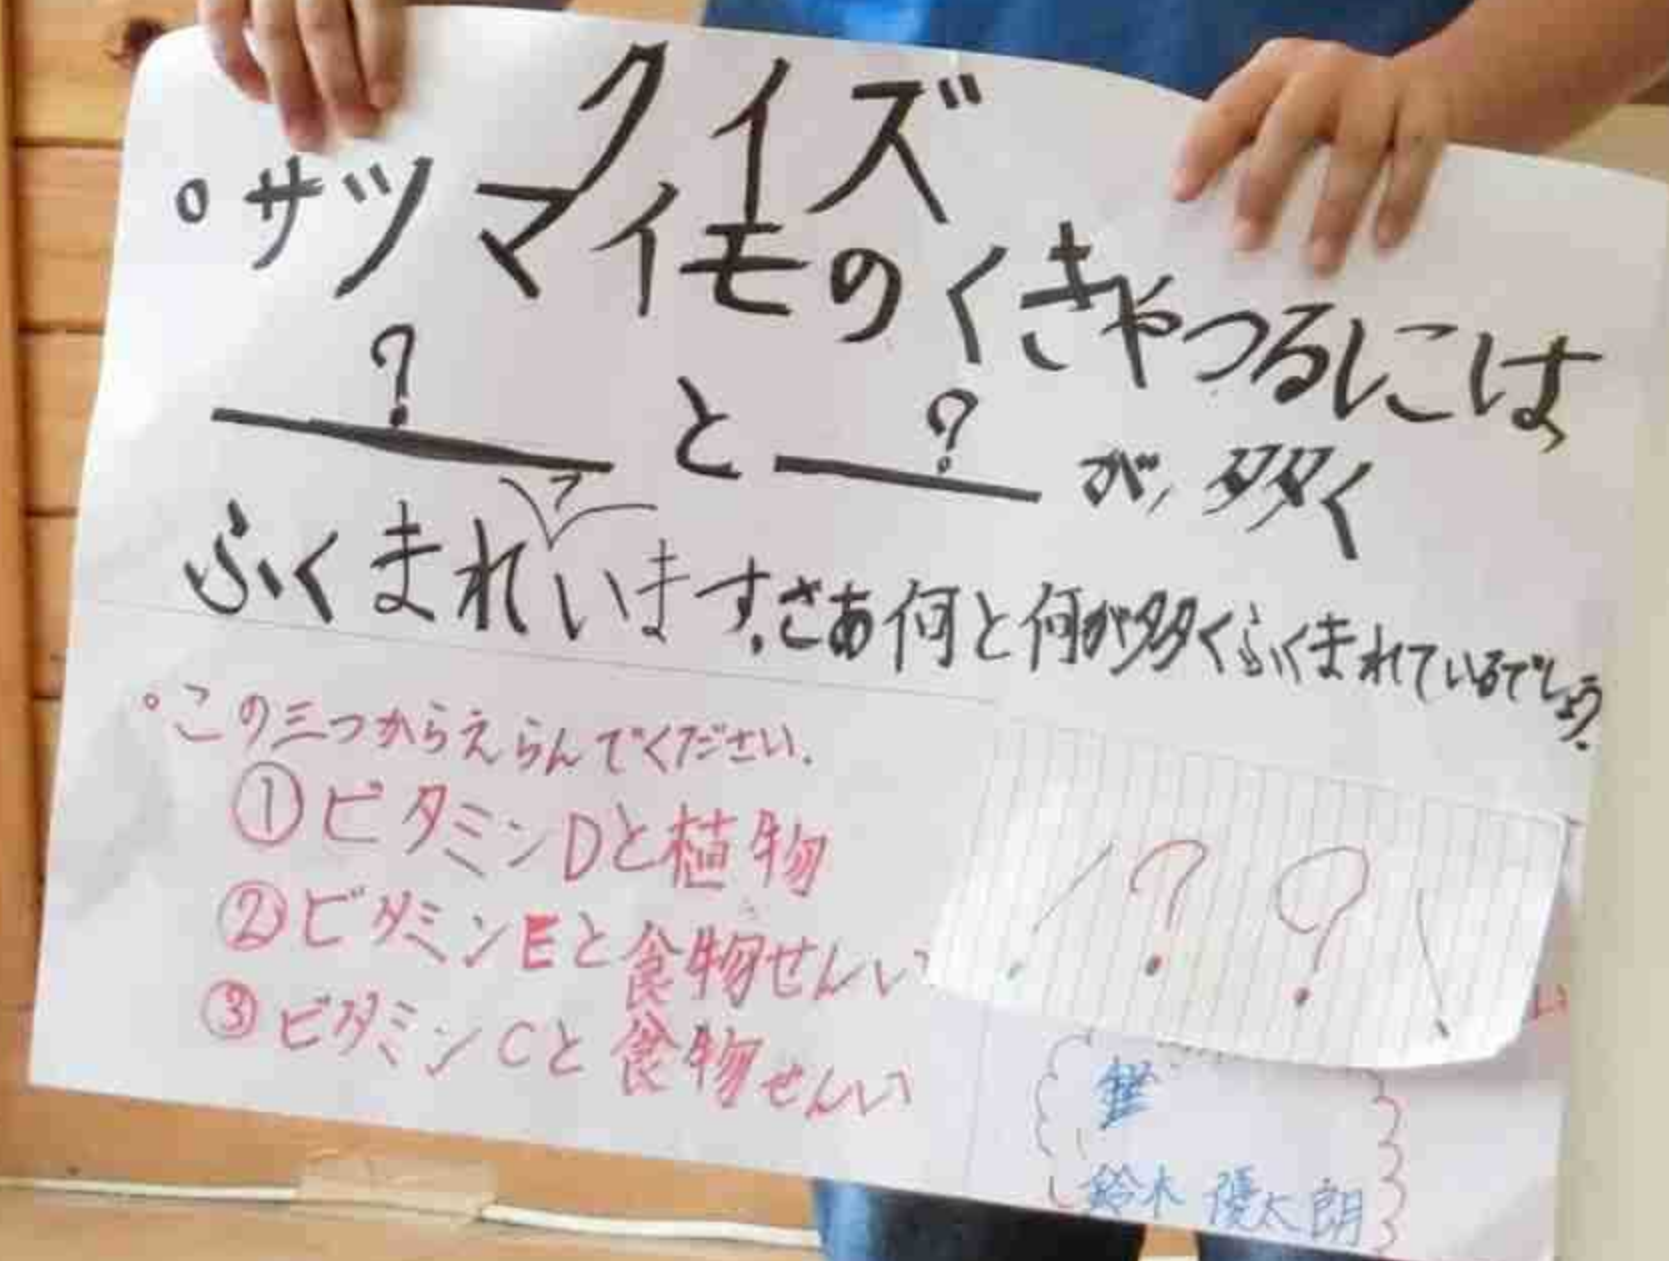 クイズ
。サツマイモのくきやつるしこは、
? と ? が、多く
ふくまれています。さあ何と何が多くふくまれているでしょう?
。この三つからえらんでください.
①ビタミンDと植物
②ビタミンEと食物せんい
③ビタミンCと食物せんい
? ?
い
鈴木 優太朗